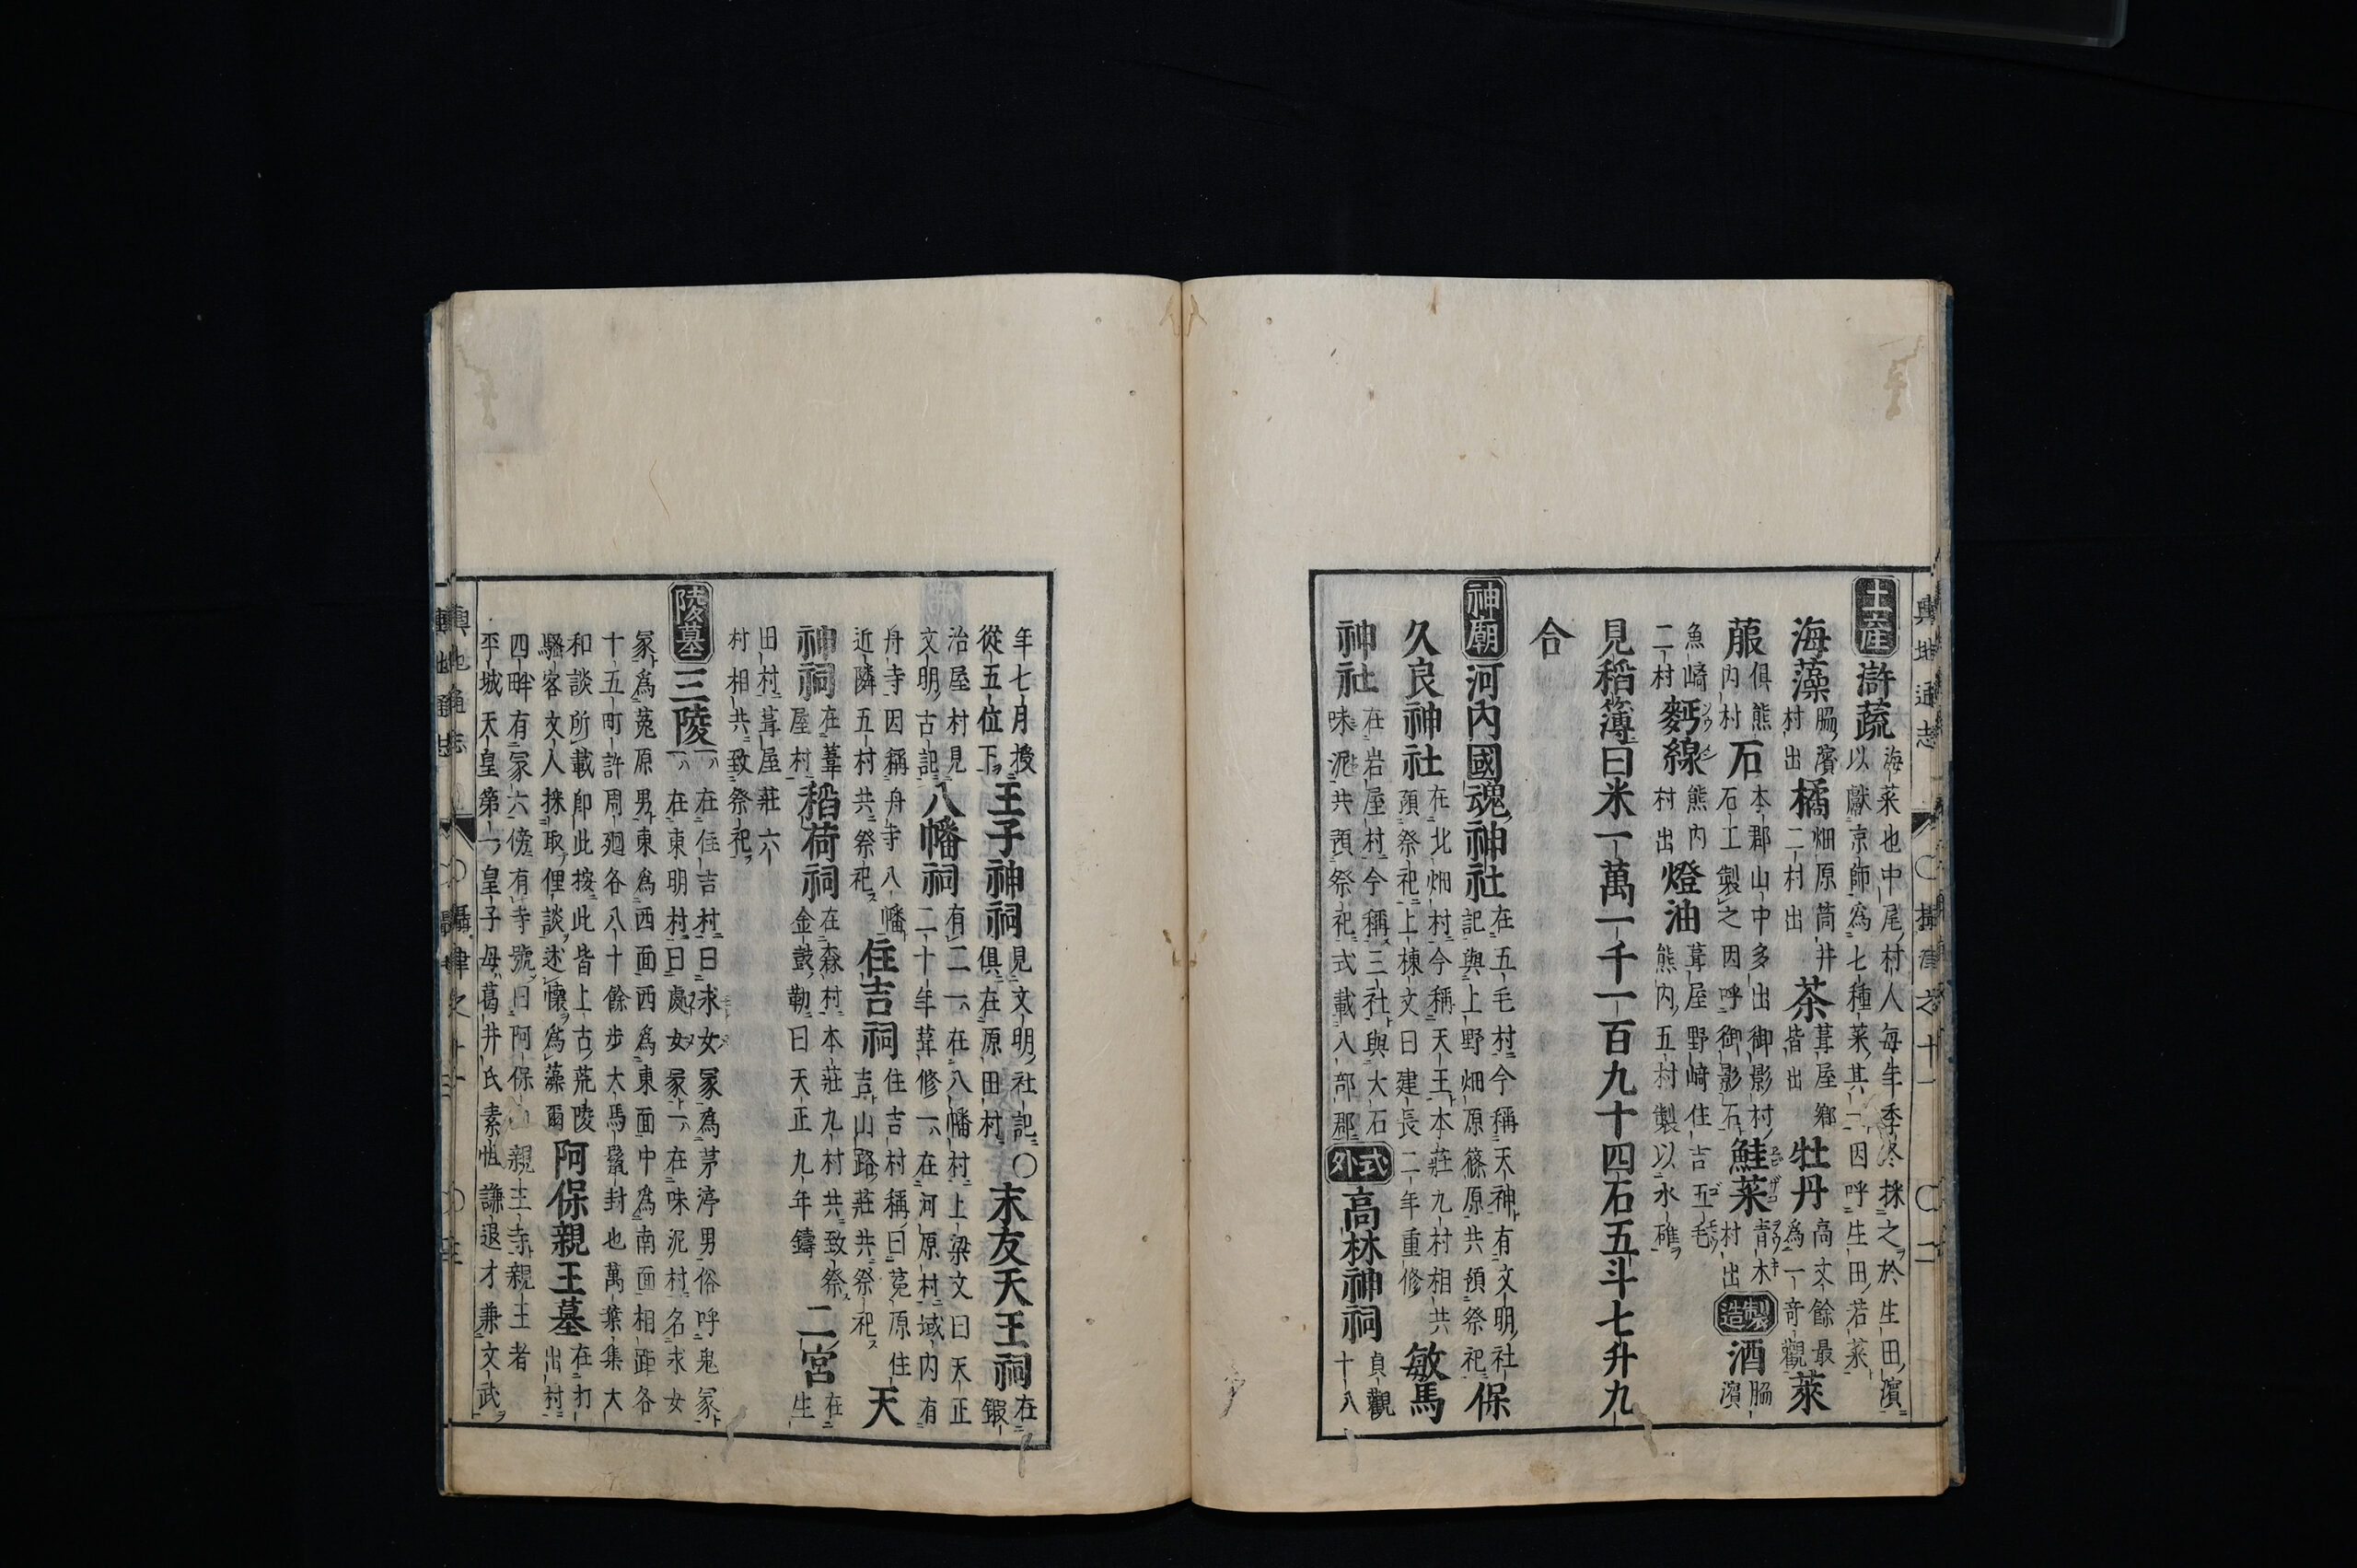 輿地通志 〇攝津之十一 〇二
土産 滸蔬 海菜也中尾村人毎年季冬採之於生田濱
以獻京師為七種菜其一因呼生田若菜
海藻 脇濱村出 橘 畑原筒井二村出 茶 葺屋郷皆出 牡丹 高丈餘最為一竒觀 萊
菔 倶熊内村 石 本郡山中多出御影村石工製之因呼御影石 鮭菜 青木村出 製造 酒 脇濱
魚崎二村 麪線 熊内村出 燈油 葺屋野崎住吉五毛熊内五村製以水碓
見稻簿曰米一萬一千一百九十四石五斗七升九
合
神廟 河内國魂神社 在五毛村今稱天神有文明社記與上野畑原篠原共預祭祀 保
久良神社 在北畑村今稱天王本莊九村相共預祭祀上棟文曰建長二年重修 敏馬
神社 在岩屋村今稱三社與大石味泥共預祭祀式載八部郡 式外 高林神祠 貞觀十八
年七月授從五位下 王子神祠 見文明社記〇倶在原田村 末友天王祠 在鍜
治屋村見文明古記 八幡祠 有二一在八幡村上梁文曰天正二十年葺修一在河原村域内有
舟寺因稱舟寺八幡近隣五村共祭祀 住吉祠 住吉村稱曰菟原住吉山路莊共祭祀 天
神祠 在葺屋村 稻荷祠 在森村本莊九村共致祭金鼓勒曰天正九年鑄 二宮 在生
田村葺屋莊六村相共致祭祀
陵墓 三陵 一在住吉村曰求女冢為茅渟男俗呼鬼冢一在東明村曰處女冢一在味泥村名求女
冢為菟原男東為西面西為東面中為南面相距各十五町許周廻各八十餘歩大馬鬛封也萬葉集大
和談所載即此按此皆上古荒陵騷客文人採取俚談述懷為藻爾 阿保親王墓 在打出村
四畔有冢六傍有寺號曰阿保山親王寺親王者
平城天皇第一皇子母葛井氏素性謙退才兼文武
輿地通志 攝津之十一